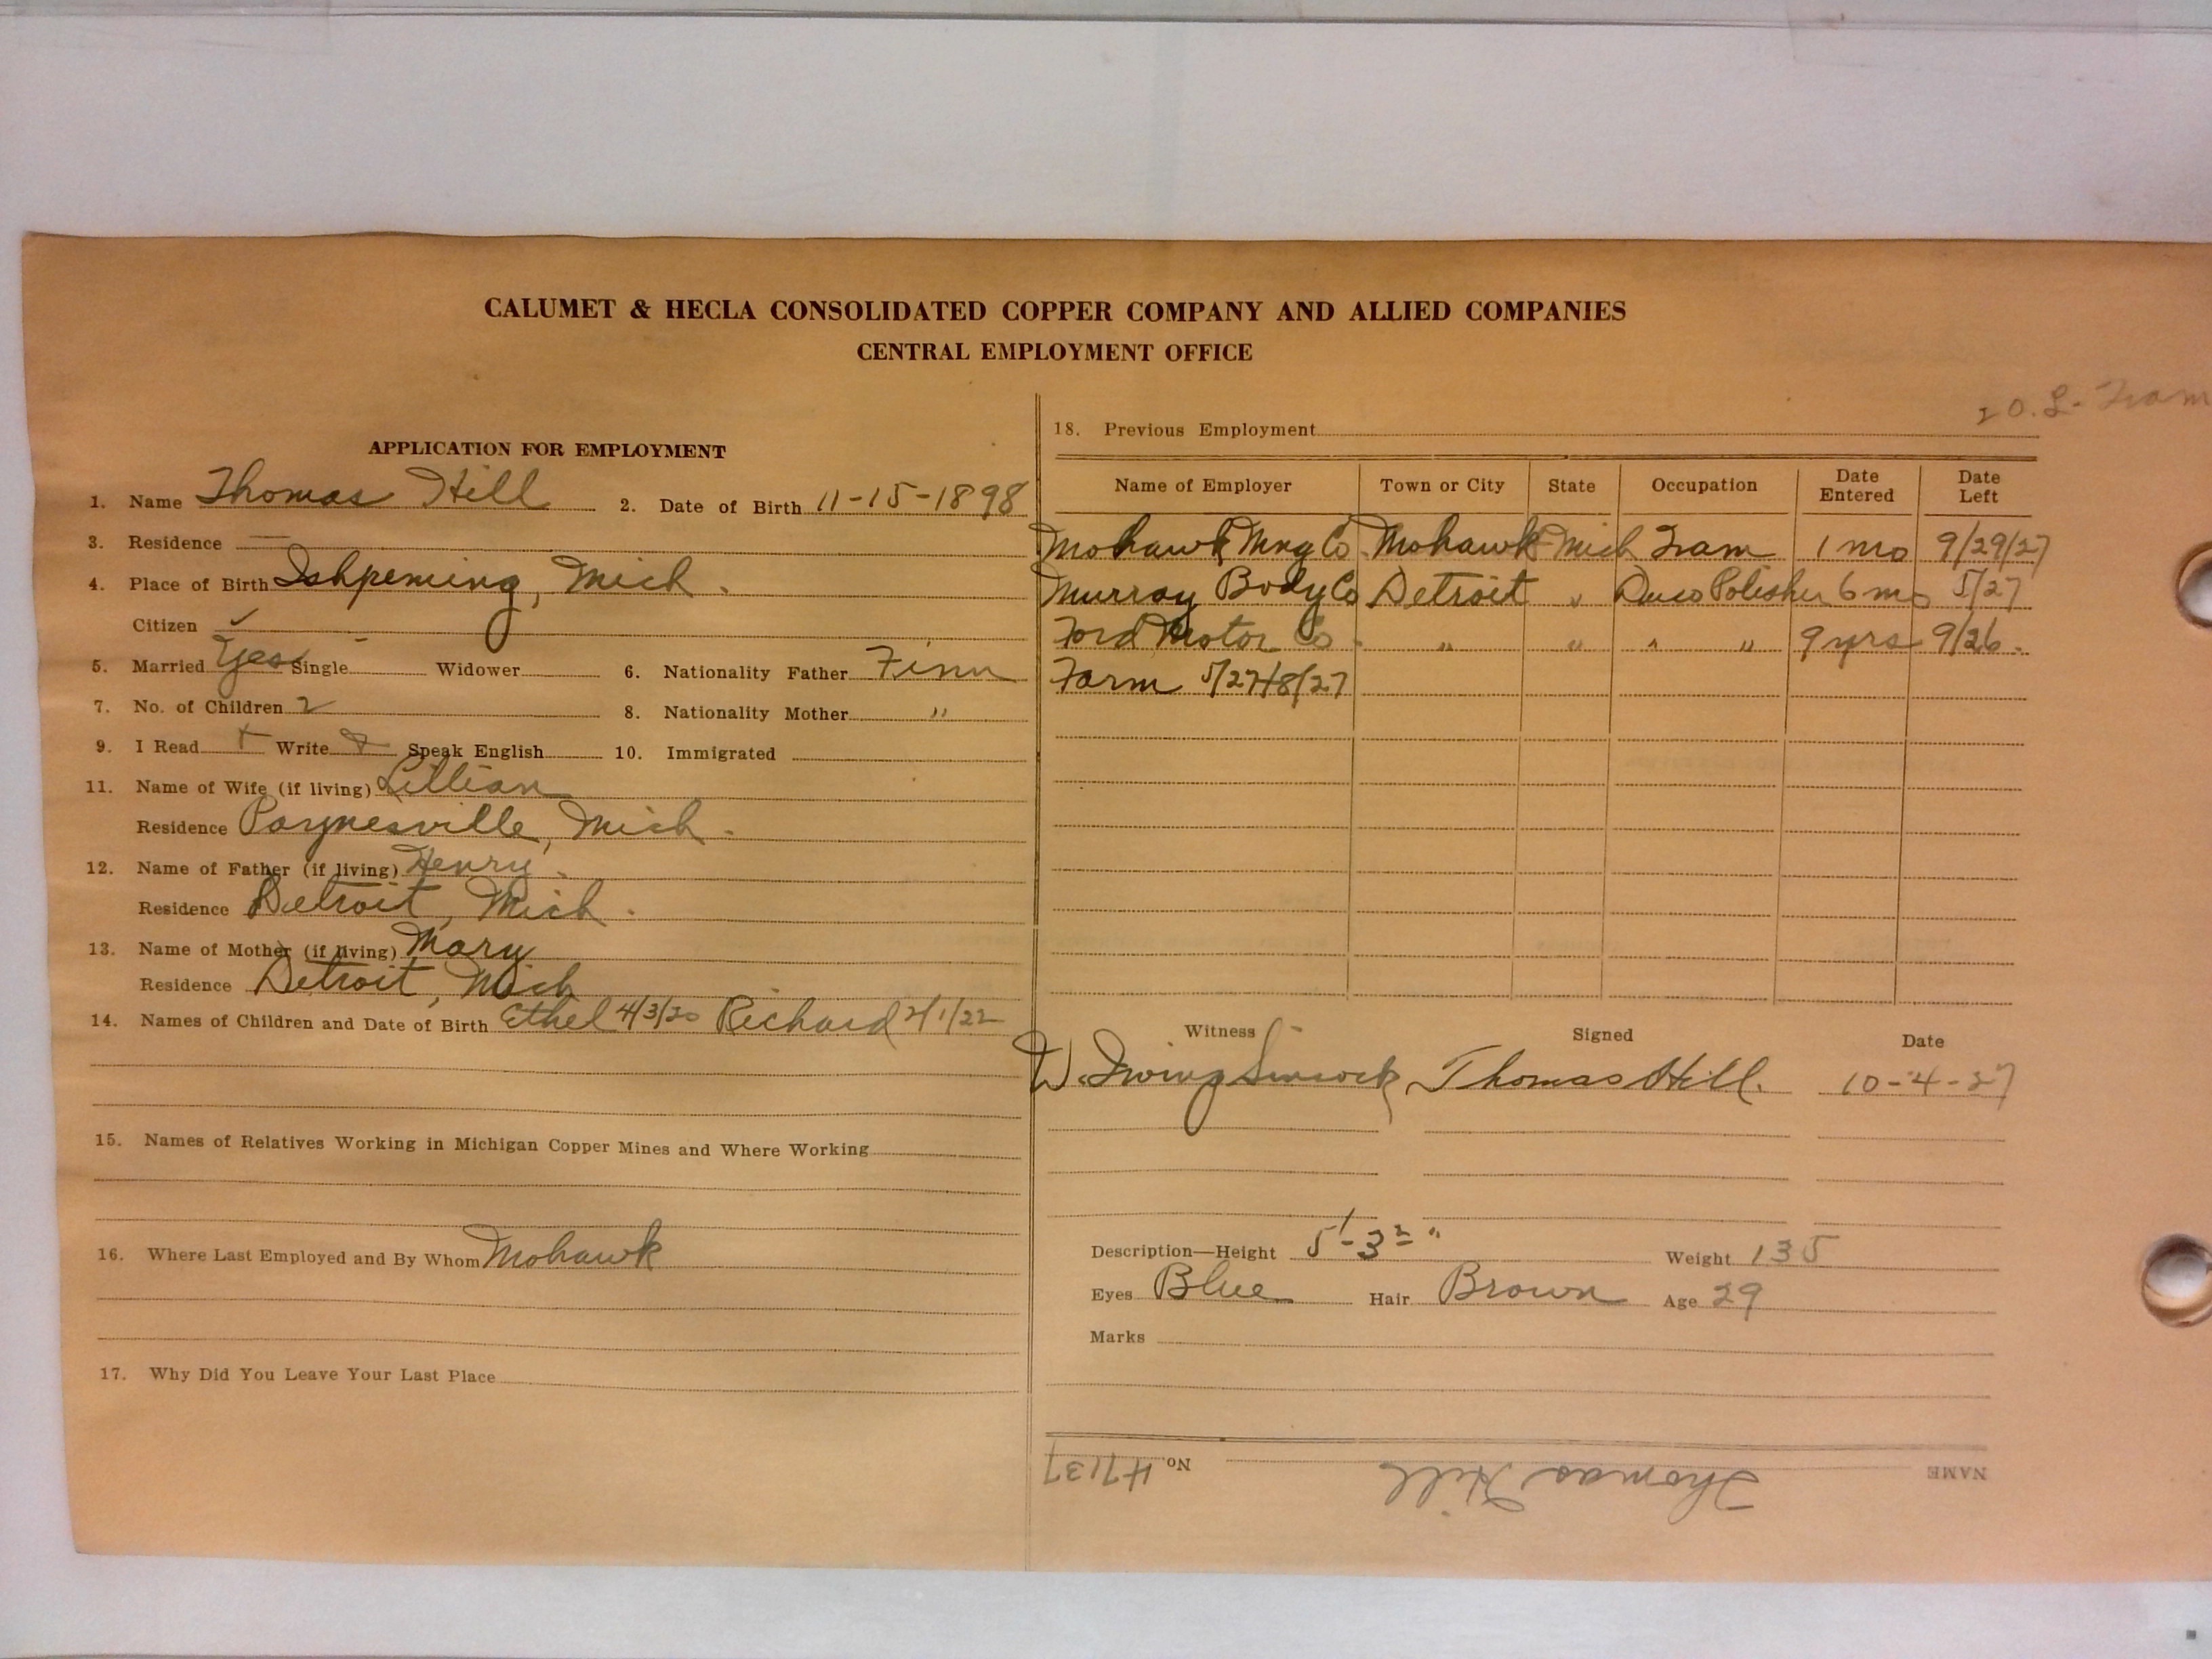 CALUMET & HECLA CONSOLIDATED COPPER COMPANY AND ALLIED COMPANIES
CENTRAL EMPLOYMENT OFFICE
APPLICATION FOR EMPLOYMENT
1. Name Thomas Hill 2. Date of Birth 11-15-1898
3. Residence —
4. Place of Birth Ishpeming, Mich.
Citizen ✓
5. Married Yes Single - Widower 6. Nationality Father Finn
7. No. of Children 2 8. Nationality Mother "
9. I Read Write Speak English 10. Immigrated
11. Name of Wife (if living) Lillian
Residence Paynesville, Mich.
12. Name of Father (if living) Henry.
Residence Detroit, Mich.
13. Name of Mother (if living) Mary
Residence Detroit, Mich
14. Names of Children and Date of Birth Ethel 4/3/20 Richard 2/1/22
15. Names of Relatives Working in Michigan Copper Mines and Where Working
16. Where Last Employed and By Whom Mohawk
17. Why Did You Leave Your Last Place
O.L. Tram
18. Previous Employment
Name of Employer Town or City State Occupation Date Entered Date Left
Mohawk Mng Co. Mohawk Mich Tram 1 mo 9/29/27
Murray Body Co Detroit " Duco Polisher 6 mo 5/27
Ford Motor Co. " " " " 9 yrs 9/26.
Farm 5/27-8/27
Witness Signed Date
W. Irving Thomas Hill. 10-4-27
Description—Height 5'-3 " Weight 135
Eyes Blue Hair Brown Age 29
Marks
NAME Thomas Hill No. 47137